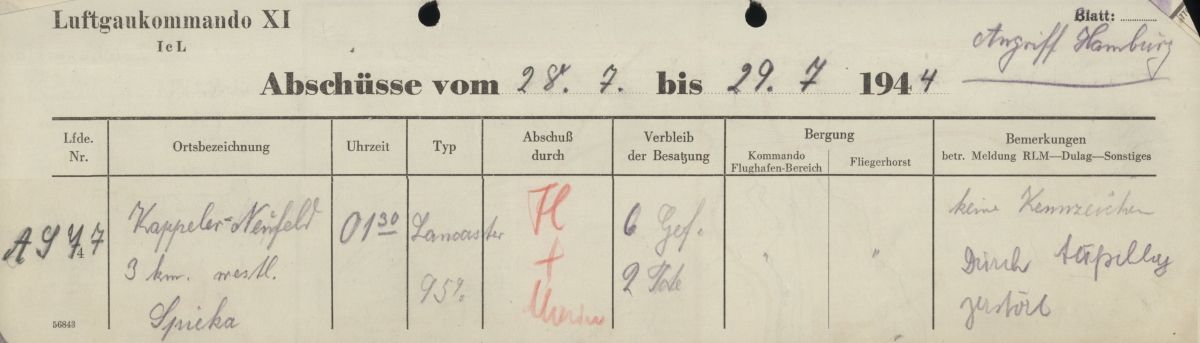 Luftgaukommando XI
Ic L
Blatt:
Angriff Hamburg
Abschüsse vom 28. 7. bis 29. 7 1944
Lfde. Nr.
Ortsbezeichnung
Uhrzeit
Typ
Abschuß durch
Verbleib der Besatzung
Bergung
Kommando Flughafen-Bereich
Fliegerhorst
Bemerkungen
betr. Meldung RLM—Dulag—Sonstiges
Kappeler-Neufeld
3 km. westl.
Spieka
01 30
Lancaster
95%
+
6 Gef.
2 Tote
"
"
keine Kennzeichen
Durch Aufschlag
zerstört
56843